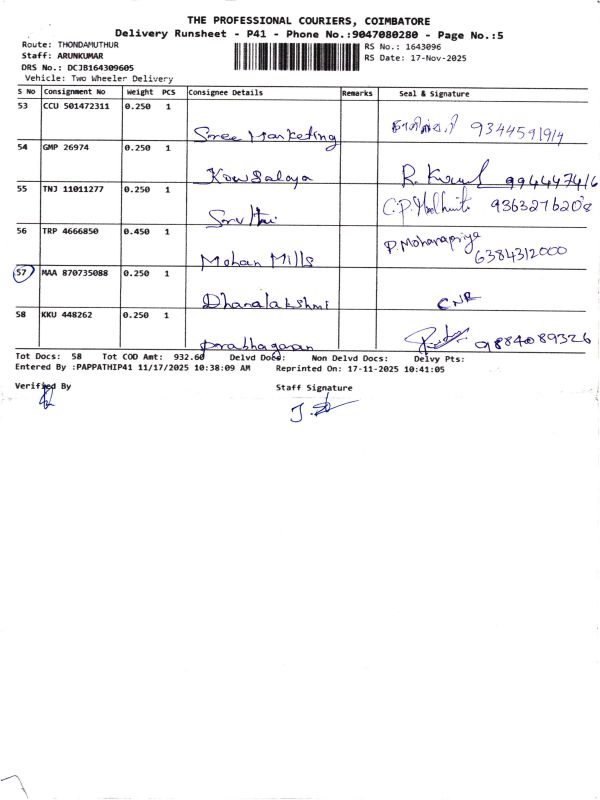 THE PROFESSIONAL COURIERS, COIMBATORE
Delivery Runsheet - P41 - Phone No.:9047080280 - Page No.:5
Route: THONDAMUTHUR
RS No.: 1643096
Staff: ARUNKUMAR
RS Date: 17-Nov-2025
DRS No.: DCJB164309605
Vehicle: Two Wheeler Delivery
S No Consignment No Weight PCS Consignee Details Remarks Seal & Signature
53 CCU 501472311 0.250 1
Sree Marketing 9344591914
54 GMP 26974 0.250 1
Kowsalaya R. 9944474716
55 TNJ 11011277 0.250 1
C.P. 9363276208
56 TRP 4666850 0.450 1
Mohan Mills P. Mohanapriya
6384312000
57 MAA 870735088 0.250 1
Dhanalakshmi CNR
58 KKU 448262 0.250 1
Prabhagaran 9884089326
Tot Docs: 58 Tot COD Amt: 932.60 Delvd Docs: Non Delvd Docs: Delvy Pts:
Entered By :PAPPATHIP41 11/17/2025 10:38:09 AM Reprinted On: 17-11-2025 10:41:05
Verified By
Staff Signature